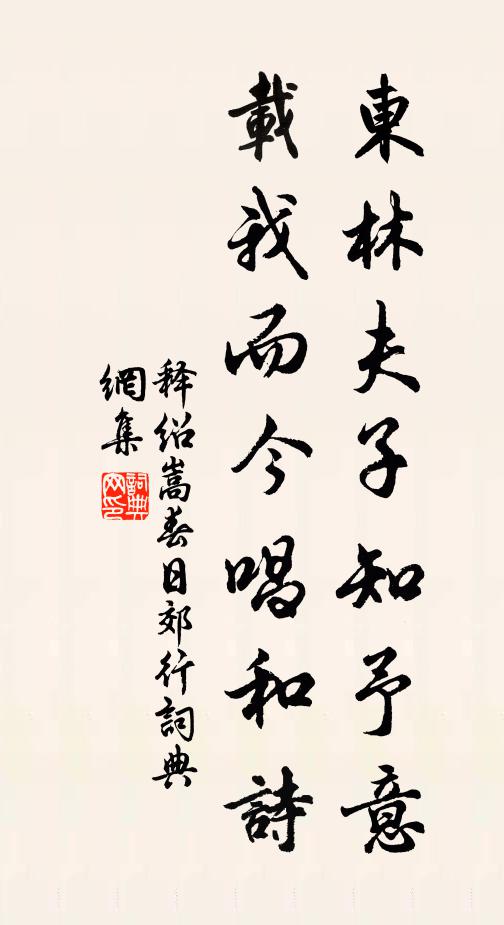 東林夫子知予意
載我而今唱和詩
释绍嵩春日郊行詞典
網集
詞典
网印